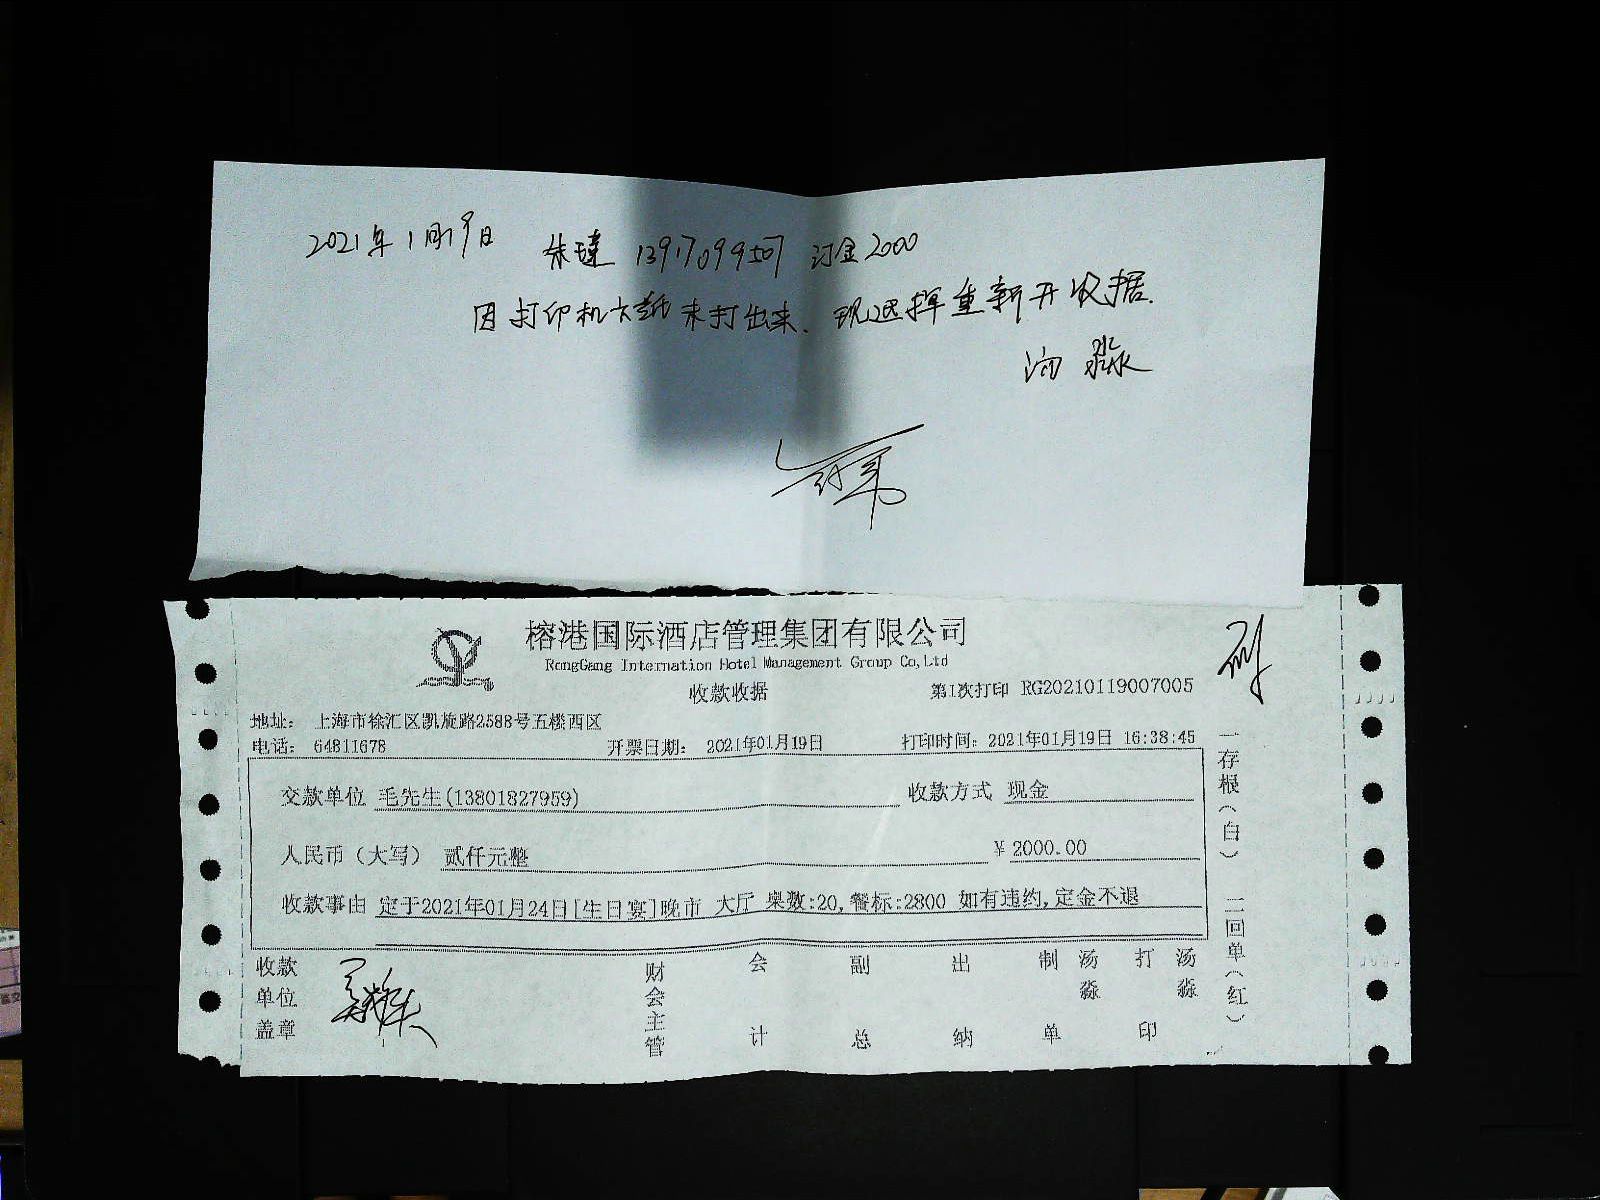 2021年1月19日 朱琎 13917099507 订金2000
因打印机卡纸未打出来. 现选择重新开收据.
汤 淼
榕港国际酒店管理集团有限公司
RongGang Internation Hotel Management Group Co,Ltd
收款收据 第1次打印 RG20210119007005
地址: 上海市徐汇区凯旋路2588号五楼西区
电话: 64811678 开票日期: 2021年01月19日 打印时间: 2021年01月19日 16:38:45
交款单位 毛先生(13801827959) 收款方式 现金
人民币(大写) 贰仟元整 ¥2000.00
收款事由 定于2021年01月24日[生日宴]晚市 大厅 桌数:20,餐标:2800 如有违约,定金不退
收款单位盖章 财会主管 会计 副总 出纳 制单 汤淼 打印 汤淼
一存根(白) 二回单(红)